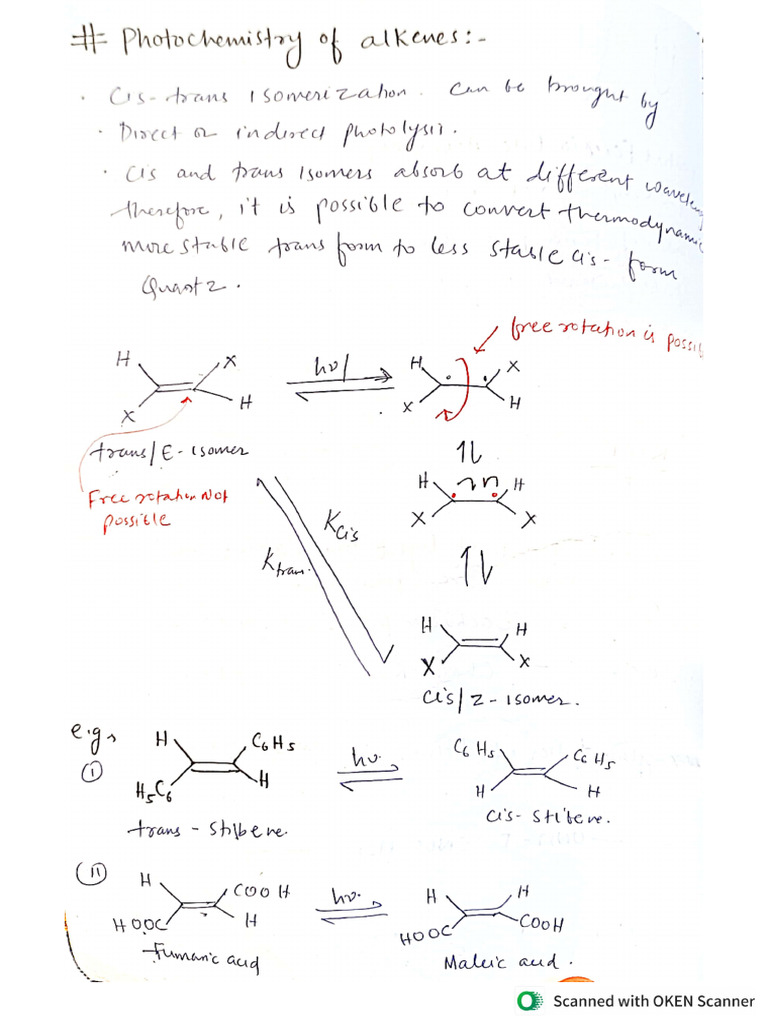 # Photochemistry of alkenes:-
· Cis-trans Isomerization. Can be brought by
· Direct or indirect photolysis.
· Cis and trans isomers absorb at different waveleng
therefore, it is possible to convert thermodynamic
more stable trans form to less stable cis- form
Quartz.
free rotation is possib
H X
hν
H X
X H
X H
trans/E-isomer
1L
Free rotation Not
possible
H H
X X
Kcis
Ktran.
1L
H H
X X
cis/Z-isomer.
e.g,
(i)
H C6H5
hν.
C6H5 C6H5
H5C6 H
H H
trans - stilbene.
cis- stilbene.
(ii)
H COOH
hν.
H H
HOOC H
HOOC COOH
Fumaric acid
Maleic acid.
Scanned with OKEN Scanner